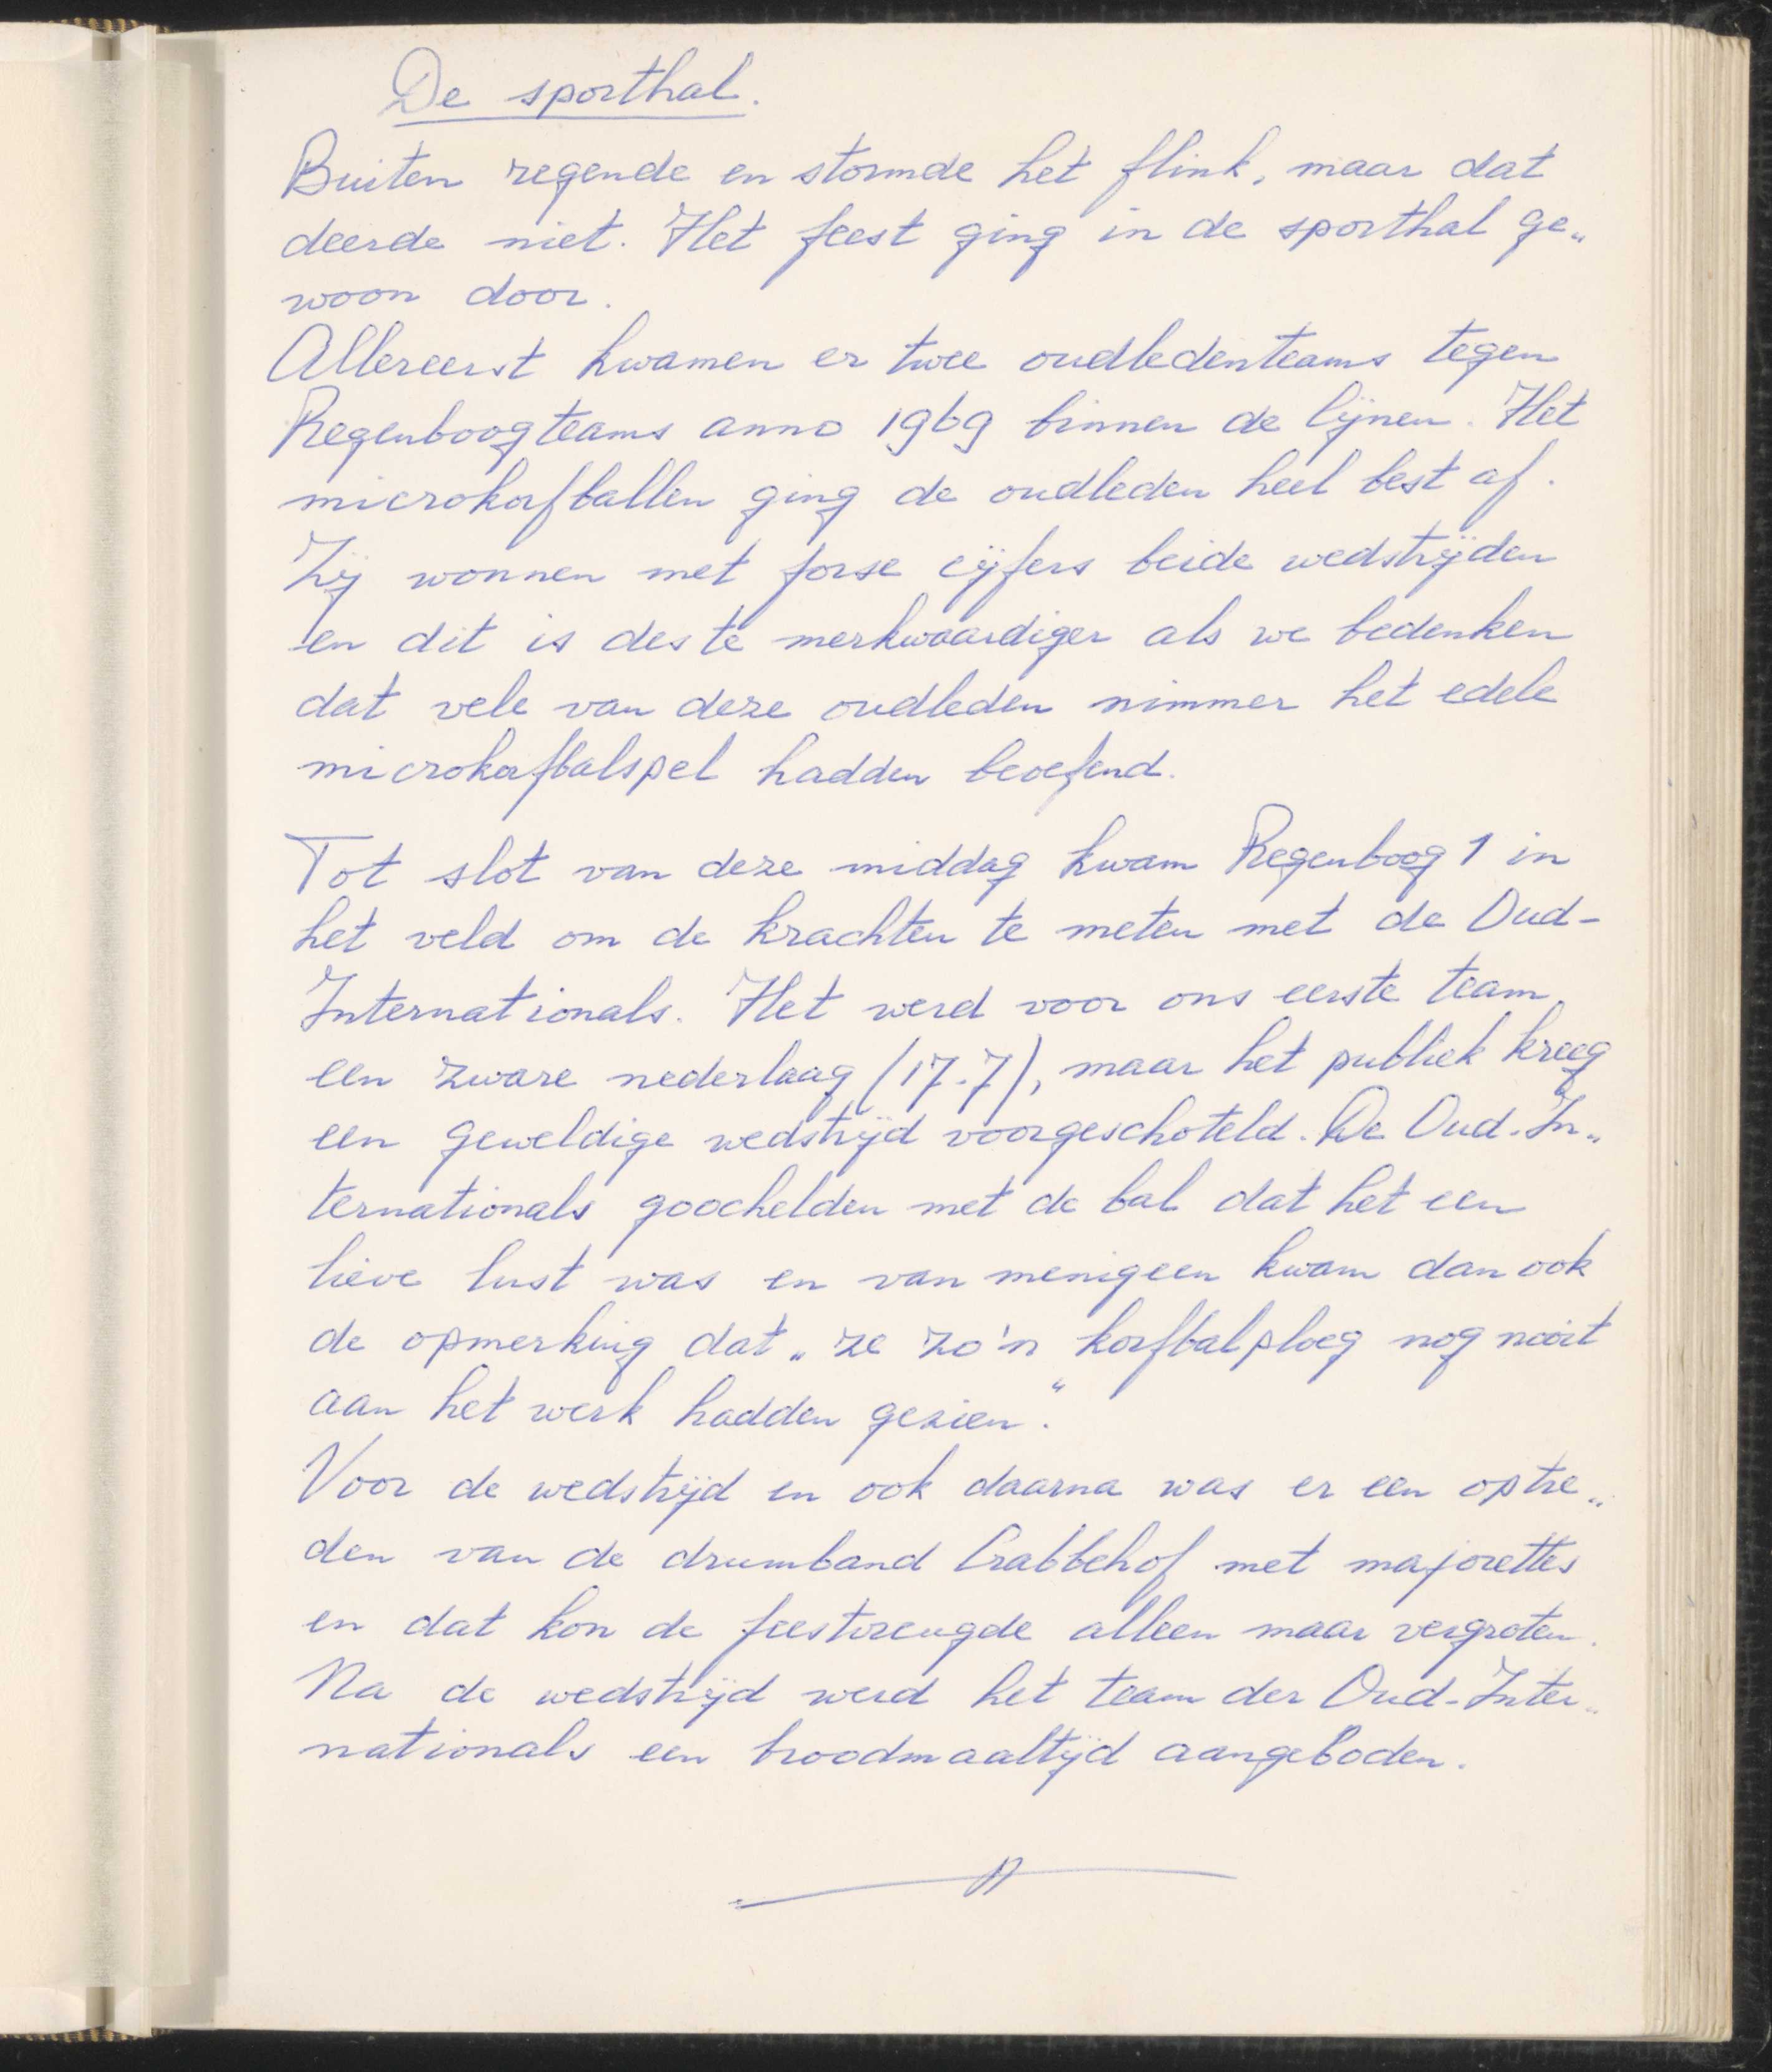 De sporthal.
Buiten regende en stormde het flink, maar dat
deerde niet. Het feest ging in de sporthal ge„
woon door.
Allereerst kwamen er twee oudledenteams tegen
Regenboogteams anno 1969 binnen de lijnen. Het
microkorfballen ging de oudleden heel best af.
Zij wonnen met forse cijfers beide wedstrijden
en dit is des te merkwaardiger als we bedenken
dat vele van deze oudleden nimmer het edele
microkorfbalspel hadden beoefend.
Tot slot van deze middag kwam Regenboog 1 in
het veld om de krachten te meten met de Oud-
Internationals. Het werd voor ons eerste team
een zware nederlaag (17-7), maar het publiek kreeg
een geweldige wedstrijd voorgeschoteld. De Oud-In„
ternationals goochelden met de bal dat het een
lieve lust was en van menigeen kwam dan ook
de opmerking dat „ze zo'n korfbalploeg nog nooit
aan het werk hadden gezien."
Voor de wedstrijd en ook daarna was er een optre„
den van de drumband Crabbehof met majorettes
en dat kon de feestvreugde alleen maar vergroten.
Na de wedstrijd werd het team der Oud-Inter„
nationals een broodmaaltijd aangeboden.